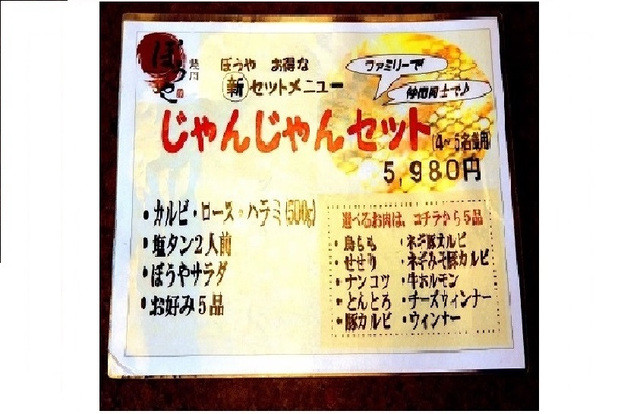 ぼうや
ぼうや お得な
新 セットメニュー
ファミリーで
仲間同士で♪
じゃんじゃんセット(4~5名様用)
5,980円
・カルビ・ロース・ハラミ(500g)
・塩タン2人前
・ぼうやサラダ
・お好み5品
選べるお肉は、コチラから5品
・鳥もも ・ネギ豚カルビ
・せせり ・ネギみそ豚カルビ
・ナンコツ ・牛ホルモン
・とんとろ ・チーズウィンナー
・豚カルビ ・ウィンナー